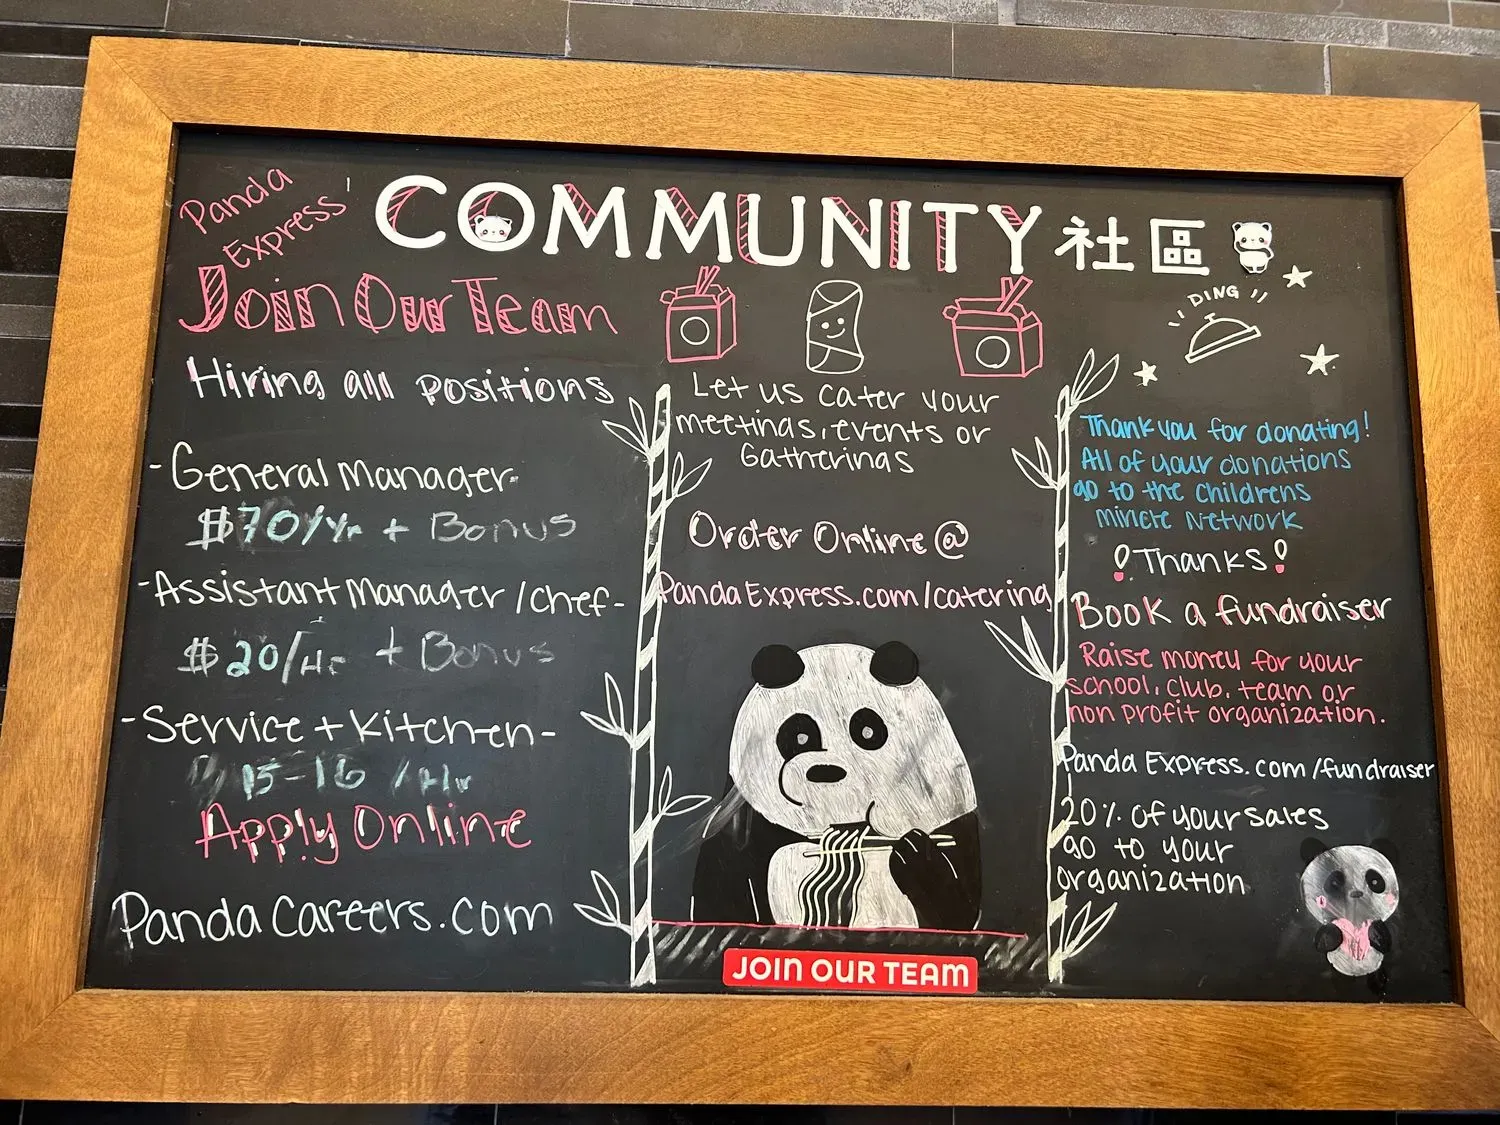 Panda
Express'
COMMUNITY 社區
Join Our Team
Hiring all positions
- General Manager-
$70/yr + Bonus
- Assistant Manager / Chef -
$20/Hr + Bonus
- Service + Kitchen -
15-16 /Hr
Apply Online
PandaCareers.com
Let us cater your
meetings, events or
Gatherings
Order Online @
PandaExpress.com/catering
JOIN OUR TEAM
DING !!
Thank you for donating!
All of your donations
go to the Childrens
mircle Network
! Thanks !
Book a fundraiser
Raise money for your
school, club, team or
non profit organization.
Panda Express.com/fundraiser
20% of your sales
go to your
organization